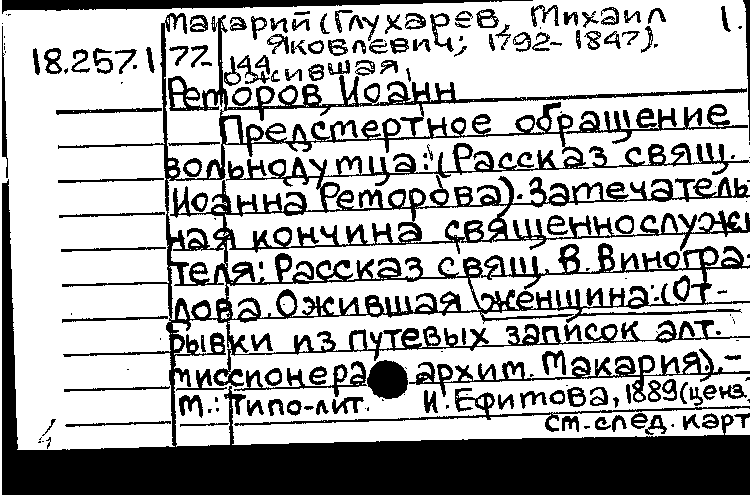 Макарий (Глухарев, Михаил 1.
Яковлевич; 1792-1847).
18.257.1 77- 144
Ожившая
Реморов, Иоанн
Предсмертное обращение
вольнодумца: (Рассказ свящ.
Иоанна Реморова). Замечатель
ная кончина священнослужи
теля: Рассказ свящ. В. Виногра-
дова. Ожившая женщина: (От-
рывки из путевых записок алт.
миссионера архим. Макария). -
М.: Типо-лит. И. Ефимова, 1889 (цена
см. след. карт